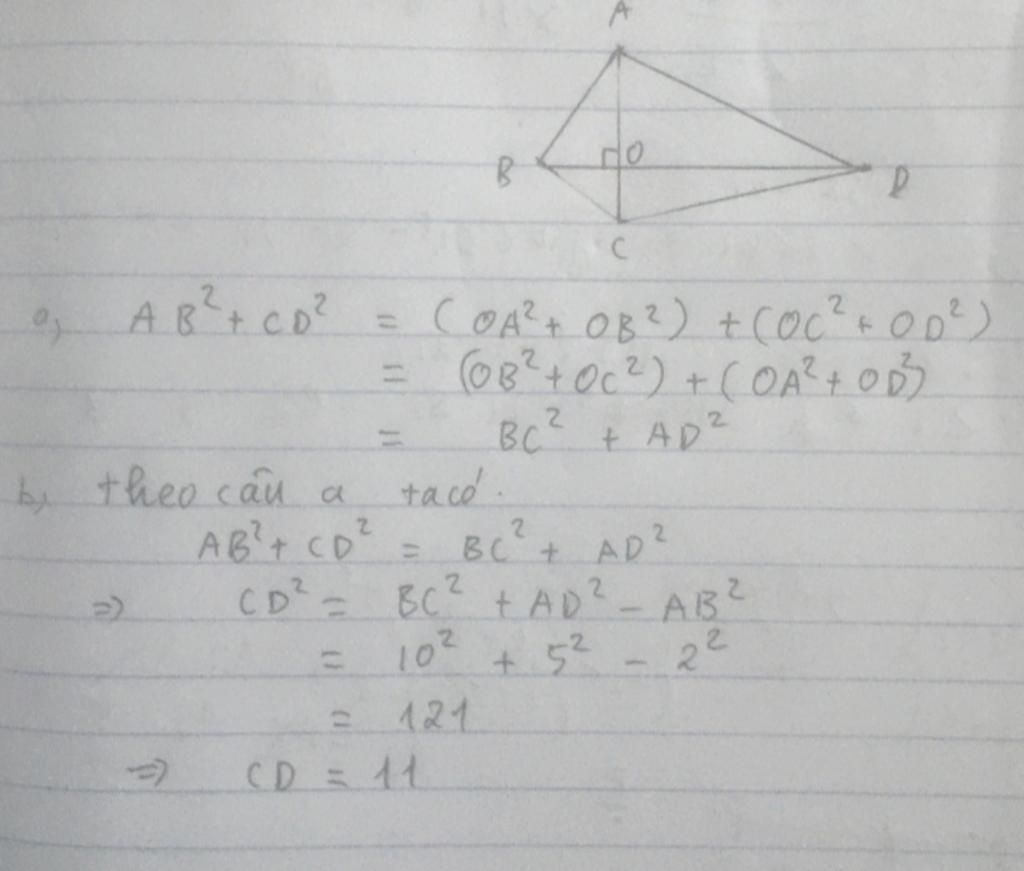 A
B
O
D
C
a, AB² + CD² = (OA² + OB²) + (OC² + OD²)
= (OB² + OC²) + (OA² + OD²)
= BC² + AD²
b, theo câu a ta có.
AB² + CD² = BC² + AD²
=> CD² = BC² + AD² - AB²
= 10² + 5² - 2²
= 121
=> CD = 11